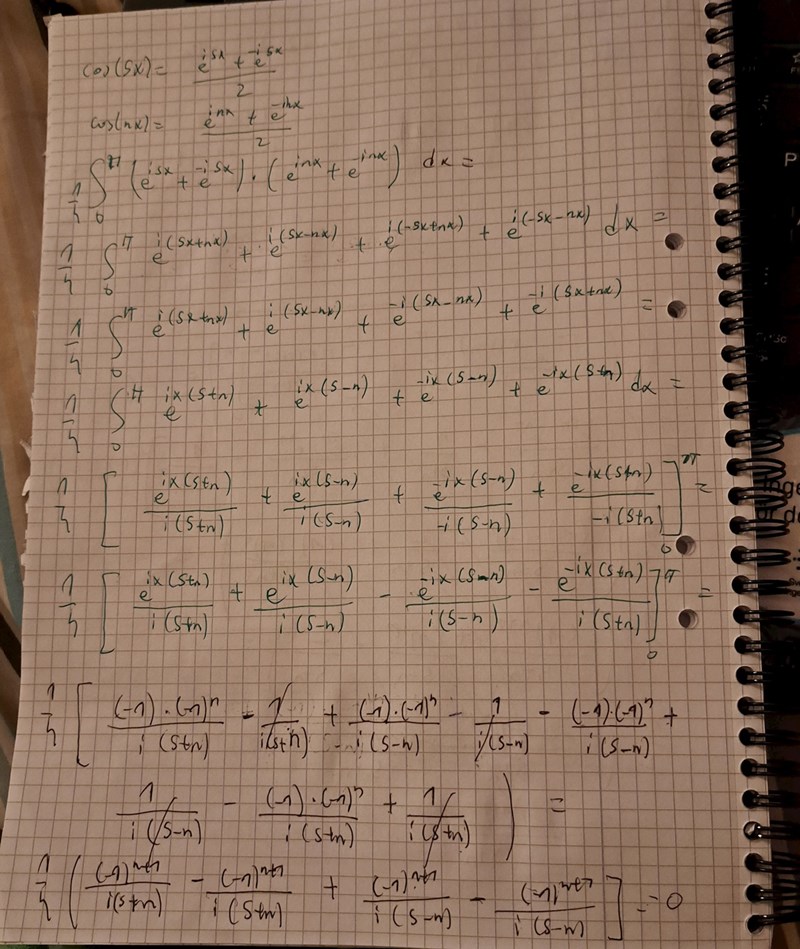 cos(5x) = (e^{i5x} + e^{-i5x})/2
cos(nx) = (e^{inx} + e^{-inx})/2
1/4 ∫_0^π (e^{i5x} + e^{-i5x}) · (e^{inx} + e^{-inx}) dx =
1/4 ∫_0^π e^{i(5x+nx)} + e^{i(5x-nx)} + e^{i(-5x+nx)} + e^{i(-5x-nx)} dx =
1/4 ∫_0^π e^{i(5x+nx)} + e^{i(5x-nx)} + e^{-i(5x-nx)} + e^{-i(5x+nx)} =
1/4 ∫_0^π e^{ix(5+n)} + e^{ix(5-n)} + e^{-ix(5-n)} + e^{-ix(5+n)} dx =
1/4 [ e^{ix(5+n)}/i(5+n) + e^{ix(5-n)}/i(5-n) + e^{-ix(5-n)}/-i(5-n) + e^{-ix(5+n)}/-i(5+n) ]_0^π =
1/4 [ e^{ix(5+n)}/i(5+n) + e^{ix(5-n)}/i(5-n) - e^{-ix(5-n)}/i(5-n) - e^{-ix(5+n)}/i(5+n) ]_0^π =
1/4 [ (-1)·(-1)^n/i(5+n) - 1/i(5+n) + (-1)·(-1)^n/i(5-n) - 1/i(5-n) - (-1)·(-1)^n/i(5-n) +
1/i(5-n) - (-1)·(-1)^n/i(5+n) + 1/i(5+n) ) =
1/4 ( (-1)^{n+1}/i(5+n) - (-1)^{n+1}/i(5+n) + (-1)^{n+1}/i(5-n) - (-1)^{n+1}/i(5-n) ] = 0